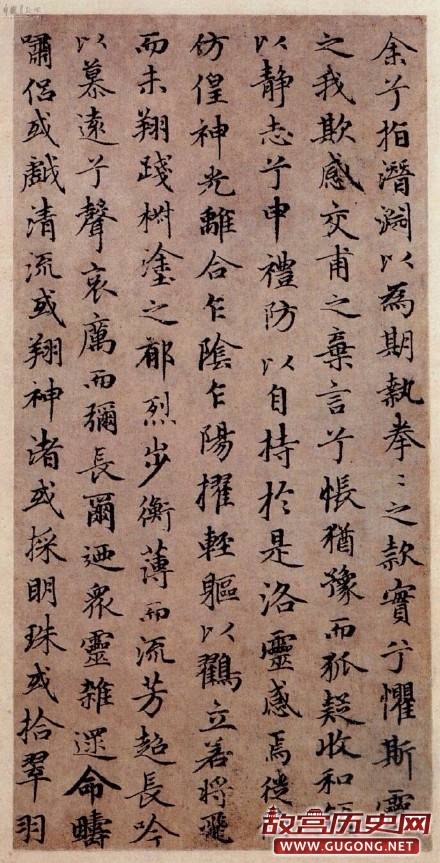 余兮指潛淵以為期執拳〻之款實兮懼斯靈
之我欺感交甫之棄言兮悵猶豫而狐疑收和
以静志兮申禮防以自持於是洛靈感焉徙
仿偟神光離合乍陰乍陽擢輕軀以鶴立若將飛
而未翔踐椒塗之郁烈步衡薄而流芳超長吟
以慕遠兮聲哀厲而彌長爾迺衆靈雜遝命疇
嘯侣或戲清流或翔神渚或採明珠或拾翠羽
故宫历史网
WWW.GUGONG.NET